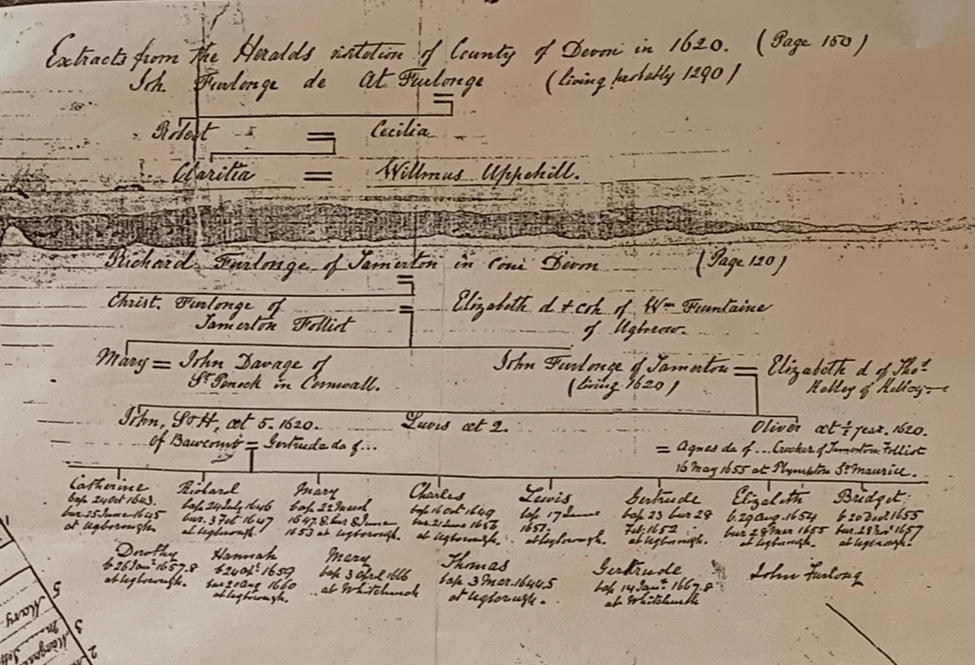 Extracts from the Heralds visitation of County of Devon in 1620. (Page 150)
Joh. Furlonge de At Furlonge (living probably 1290)
Robert = Cecilia
Claritia = Willmus Uppehill.
Richard Furlonge of Tamerton in Com Devon (Page 120)
Christ. Furlonge of = Elizabeth d + coh of Wm Funtaine
Tamerton Folliot of Ugbrow.
Mary = John Davage of John Furlonge of Tamerton = Elizabeth d of Thos
St Penock in Cornwall. (living 1620) Helley of
John, S+H, æt 5. 1620. Lewis æt 2. Oliver æt ½ year. 1620.
of Bawcomb = Gertruda da of... = Agnes da of... Crocker of Tamerton Folliot
16 May 1655 at Plympton St Maurice.
Catherine Richard Mary Charles Lewis Gertrude Elizabeth Bridget
bap 24 Oct 1643. bap 24 July 1646 bap 22 March bap 16 Oct 1649 bap 17 June bap 23 bur 28 b 29 Aug. 1654 b 20 Dec 1655
bur. 25 June 1645 bur. 3 Feb 1647 1647.8 bur 8 June bur 21 June 1656 1651. Feb 1652. bur 28 Mar 1655 bur 28 Nov 1657
at Ugborough at Ugborough 1653 at Ugborough. at Ugborough. at Ugborough. at Ugborough. at Ugborough. at Ugborough.
Dorothy Hannah Mary Thomas Gertrude John Furlong
b 26 Jany 1657.8 b 24 Oct. 1659 bap 3 April 1666 bap 3 Mar. 1644.5 bap 14 Jany 1667.8
at Ugborough. bur 20 Aug 1660 at Whitchurch at Ugborough. at Whitchurch
at Ugborough.
5 Mary
3
2